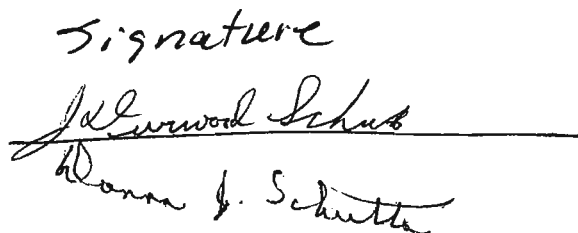 Signature
J. Durwood Schutt
Donna J. Schutta